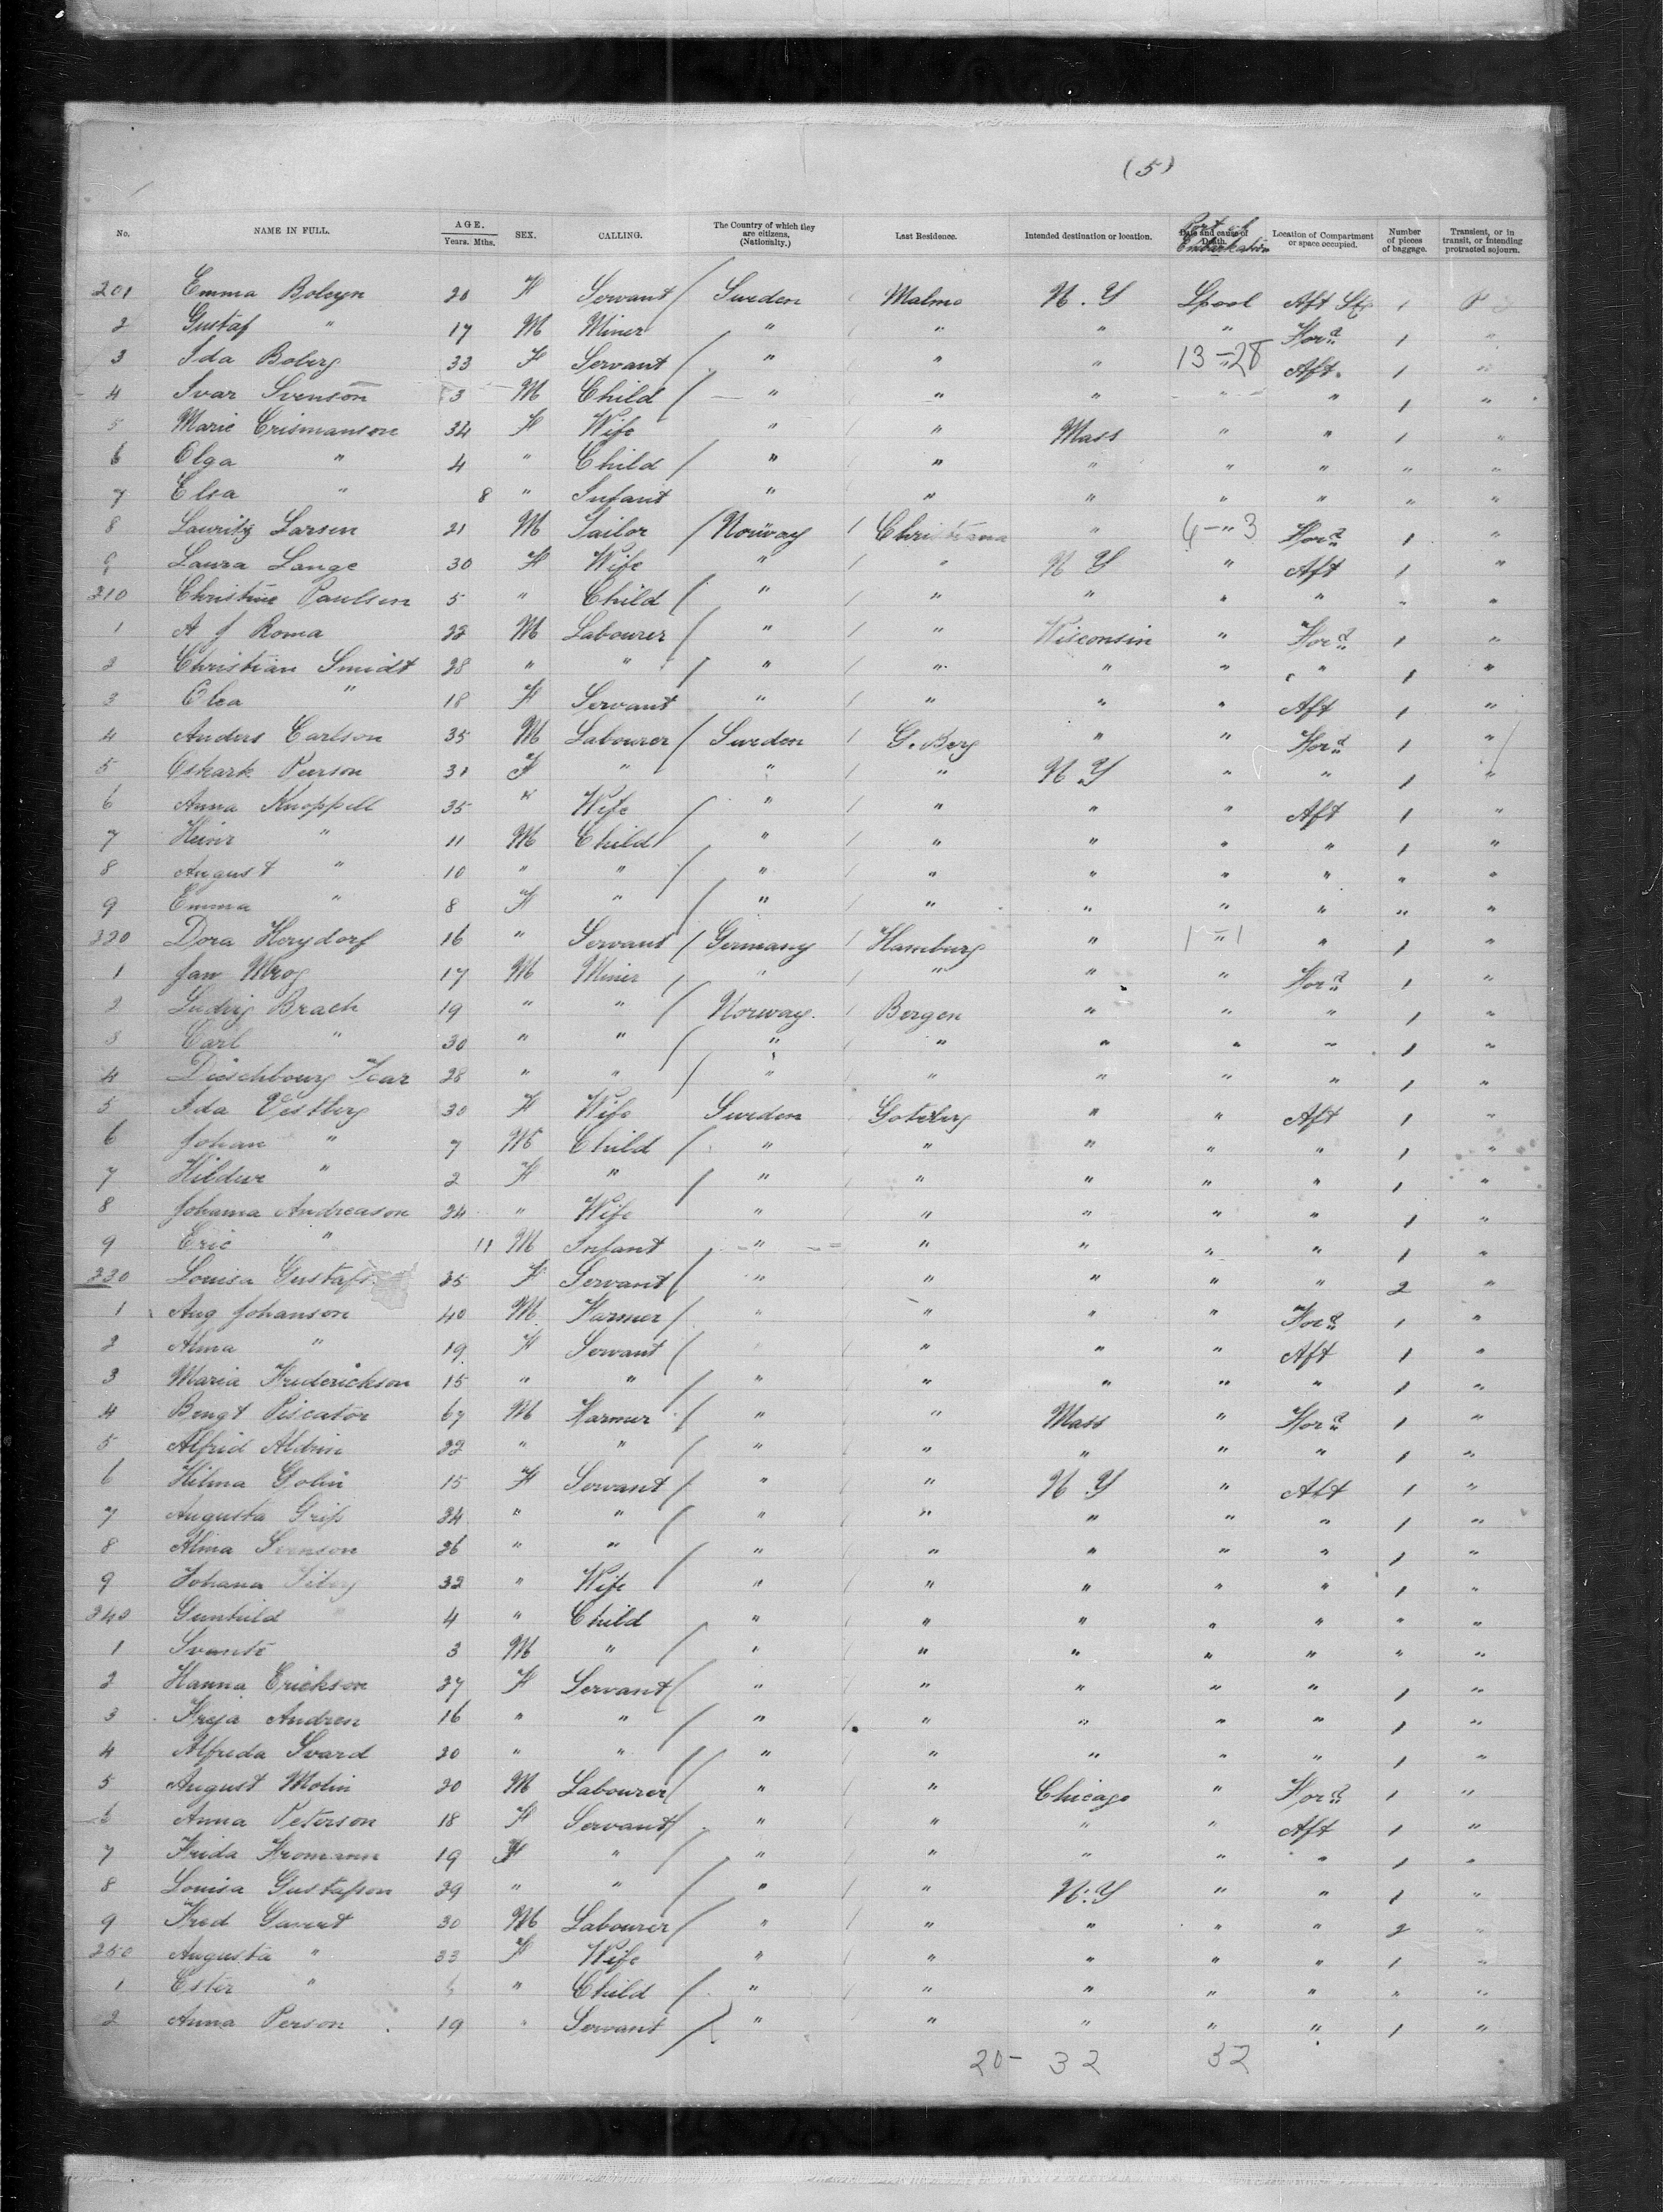 (5)
No. NAME IN FULL. AGE. Years. Mths. SEX. CALLING. The Country of which they are citizens. (Nationality.) Last Residence. Intended destination or location. Date and cause of Death. Port of Embarkation Location of Compartment or space occupied. Number of pieces of baggage. Transient, or in transit, or intending protracted sojourn.
201 Emma Boleyn 20 F Servant / Sweden / Malmo N.Y Lpool Aft Stg 1 P
2 Gustaf " 17 M Miner " / " " " For'd 1 "
3 Ida Boberg 33 F Servant / " / " " 13-"28 Aft. 1 "
4 Ivar Svenson 3 M Child / " / " " " " 1 "
5 Marie Crismanson 34 F Wife " / " Mass " " 1 "
6 Olga " 4 " Child / " / " " " " " "
7 Elsa " 8 " Infant " / " " " " " "
8 Lauritz Larsen 21 M Sailor / Norway / Christiana " 6-"3 For'd 1 "
9 Laura Lange 30 F Wife " / " N Y " Aft 1 "
210 Christine Paulsen 5 " Child / " / " " " " " "
1 A J Roma 22 M Labourer / " / " Wisconsin " For'd 1 "
2 Christian Smidt 28 " " / " / " " " " 1 "
3 Olea " 18 F Servant " / " " " Aft 1 "
4 Anders Carlson 35 M Labourer / Sweden / G. Berg " " For'd 1 "
5 Oskark Person 31 F " " / " N Y " " 1 "
6 Anna Knoppell 35 " Wife / " / " " " Aft 1 "
7 Heinr " 11 M Child / " / " " " " 1 "
8 August " 10 " " / " / " " " " " "
9 Emma " 8 F " / " / " " " " " "
220 Dora Heydorf 16 " Servant / Germany / Hamburg " 1-"1 " 1 "
1 Jan Mrog 17 M Miner / " / " " " For'd 1 "
2 Ludvig Brach 19 " " / Norway. / Bergen " " " 1 "
3 Carl " 30 " " / " / " " " " 1 "
4 28 " " / " / " " " " 1 "
5 Ida Vestberg 30 F Wife Sweden Goteberg " " Aft 1 "
6 Johan " 7 M Child / " / " " " " 1 "
7 Hildur " 2 F " / " / " " " " 1 "
8 Johanna Andreason 24 " Wife " / " " " " 1 "
9 Eric " 11 M Infant / " " " " " 1 "
230 Louisa Gustafs 35 F Servant / " / " " " " 2 "
1 Aug Johanson 40 M Farmer / " / " " " For'd 1 "
2 Alma " 19 F Servant / " / " " " Aft 1 "
3 Maria Frederickson 15 " " / " / " " " " 1 "
4 Bengt Piscator 67 M Farmer / " / " Mass " For'd 1 "
5 Alfrid Aldrin 22 " " / " / " " " " 1 "
6 Hilma Golin 15 F Servant / " / " N Y " Aft 1 "
7 Augusta Grip 24 " " / " / " " " " 1 "
8 Alma Svenson 26 " " " / " " " " 1 "
9 Johana 32 " Wife / " / " " " " 1 "
240 Gunhild " 4 " Child " / " " " " " "
1 Svante 3 M " / " / " " " " " "
2 Hanna Erickson 27 F Servant / " / " " " " 1 "
3 Freja Andren 16 " " / " / " " " " 1 "
4 Alfreda Svard 20 " " / " / " " " " 1 "
5 August Molin 20 M Labourer / " / " Chicago " For'd 1 "
6 Anna Peterson 18 F Servant / " / " " " Aft 1 "
7 Frida Fromann 19 F " / " / " " " " 1 "
8 Louisa Gustafson 29 " " / " / " N.Y " " 1 "
9 Fred 30 M Labourer / " / " " " " 2 "
250 Augusta " 33 F Wife " / " " " " 1 "
1 Ester " " Child / " / " " " " " "
2 Anna Person 19 " Servant / " " " " " 1 "
20- 32 32